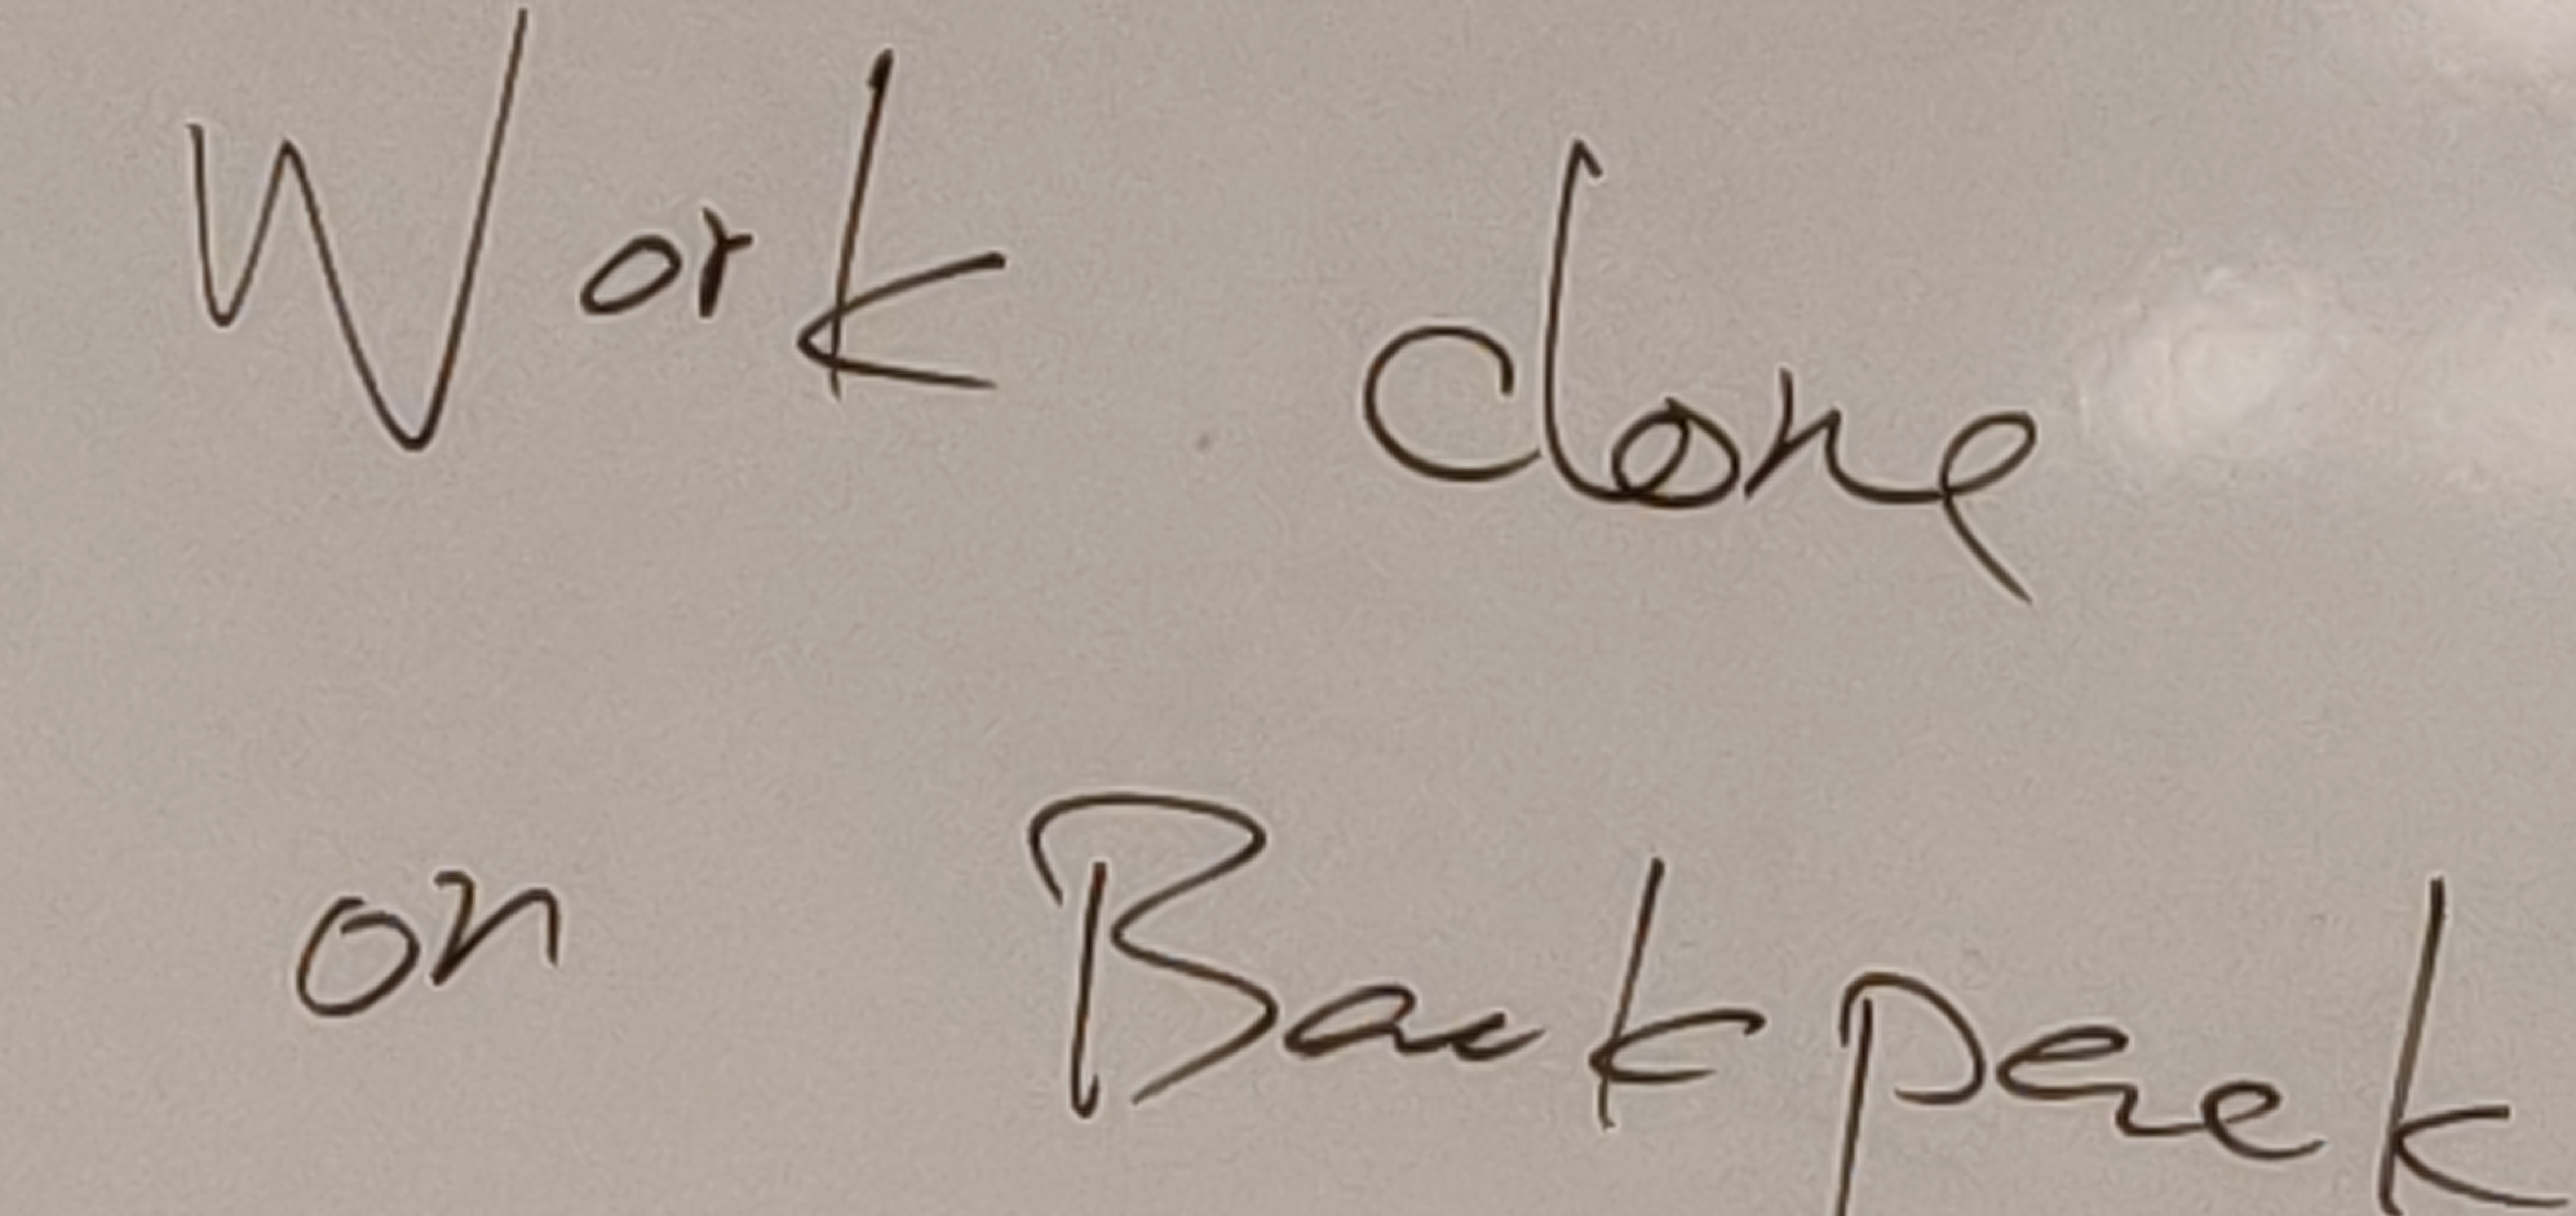 Work done
on Backpack